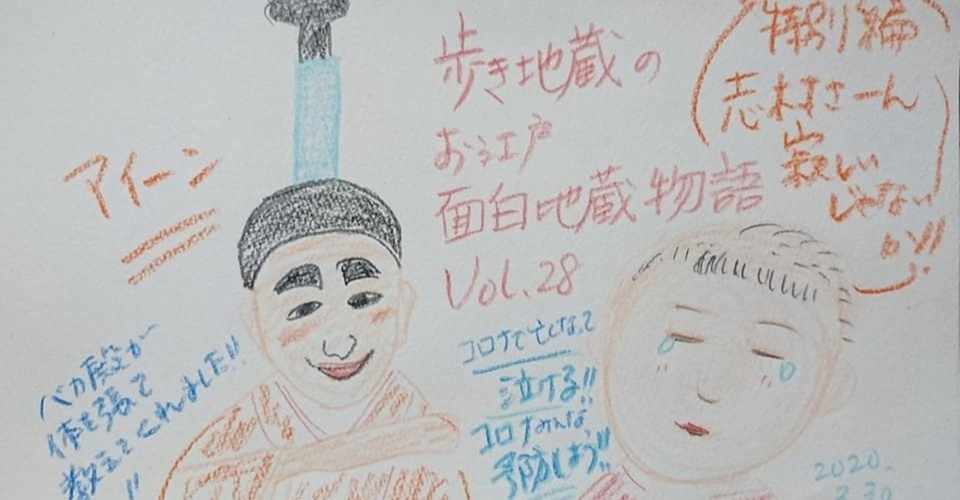 歩き地蔵の
お江戸
面白地蔵物語
Vol.28
特別編
志村さーん
寂しい
じゃない
か!!
アイーン
バカ殿が
体を張って
教えてくれました!!
コロナで亡くなって
泣ける!!
コロナみんな
予防しよう!!
2020.